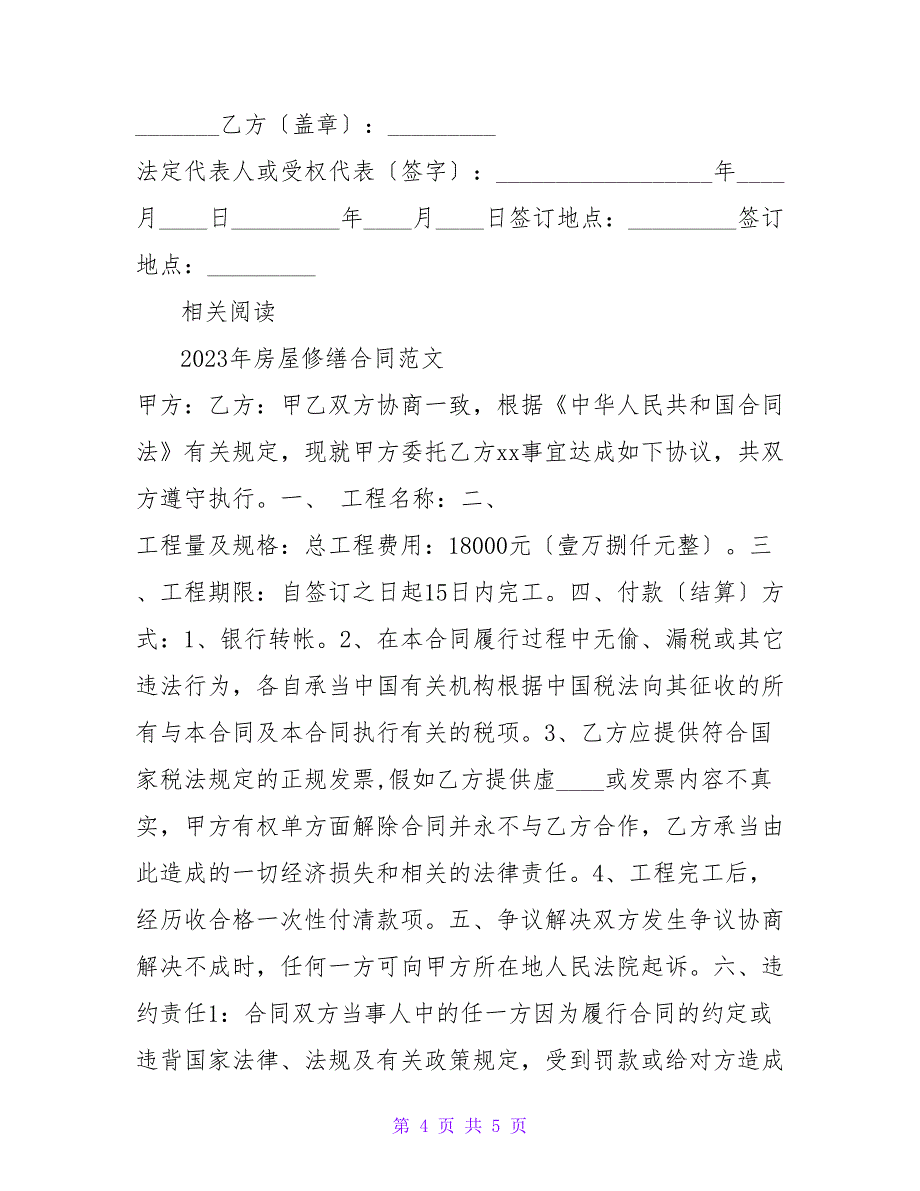 _______乙方〔盖章〕：_________
法定代表人或受权代表〔签字〕：__________________年____
月____日_________年____月____日签订地点：_________签订
地点：_________
相关阅读
2023年房屋修缮合同范文
甲方：乙方：甲乙双方协商一致，根据《中华人民共和国合同
法》有关规定，现就甲方委托乙方xx事宜达成如下协议，共双
方遵守执行。一、 工程名称：二、
工程量及规格：总工程费用：18000元〔壹万捌仟元整〕。三
、工程期限：自签订之日起15日内完工。四、付款〔结算〕方
式：1、银行转帐。2、在本合同履行过程中无偷、漏税或其它
违法行为，各自承当中国有关机构根据中国税法向其征收的所
有与本合同及本合同执行有关的税项。3、乙方应提供符合国
家税法规定的正规发票,假如乙方提供虚____或发票内容不真
实，甲方有权单方面解除合同并永不与乙方合作，乙方承当由
此造成的一切经济损失和相关的法律责任。4、工程完工后，
经历收合格一次性付清款项。五、争议解决双方发生争议协商
解决不成时，任何一方可向甲方所在地人民法院起诉。六、违
约责任1：合同双方当事人中的任一方因为履行合同的约定或
违背国家法律、法规及有关政策规定，受到罚款或给对方造成
第 4 页 共 5 页